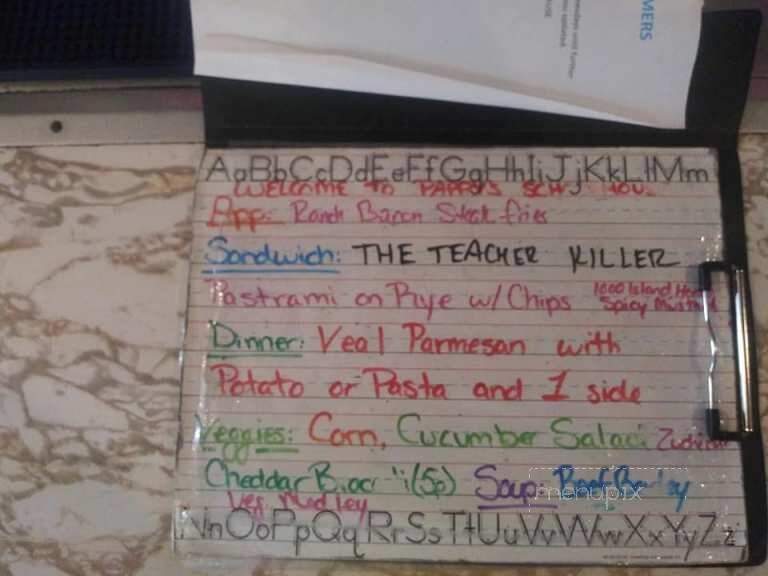 MERS
AaBbCcDdEeFfGgHhIiJjKkLlMm
WELCOME TO PAPPY'S
App: Ranch Bacon Steak fries
Sandwich: THE TEACHER KILLER
Pastrami on Rye w/ Chips 1000 Island
Spicy
Dinner: Veal Parmesan with
Potato or Pasta and 1 side
Veggies: Corn, Cucumber Salad
Cheddar (Sp) Soup: Beef Barley
Veg Medley
menupix
NnOoPpQqRrSsTtUuVvWwXxYyZz